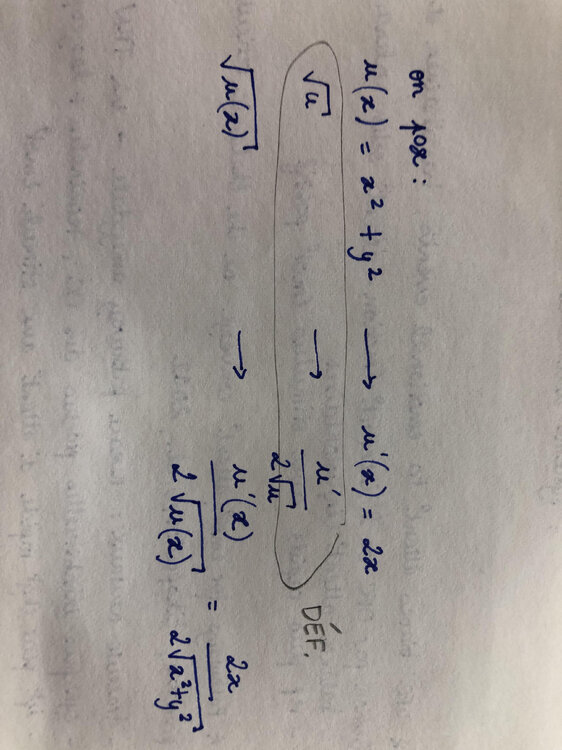 on pose :
u(x) = x² + y² → u'(x) = 2x
√u → u'/2√u DÉF.
√u(x) → u'(x)/2√u(x) = 2x/2√x²+y²